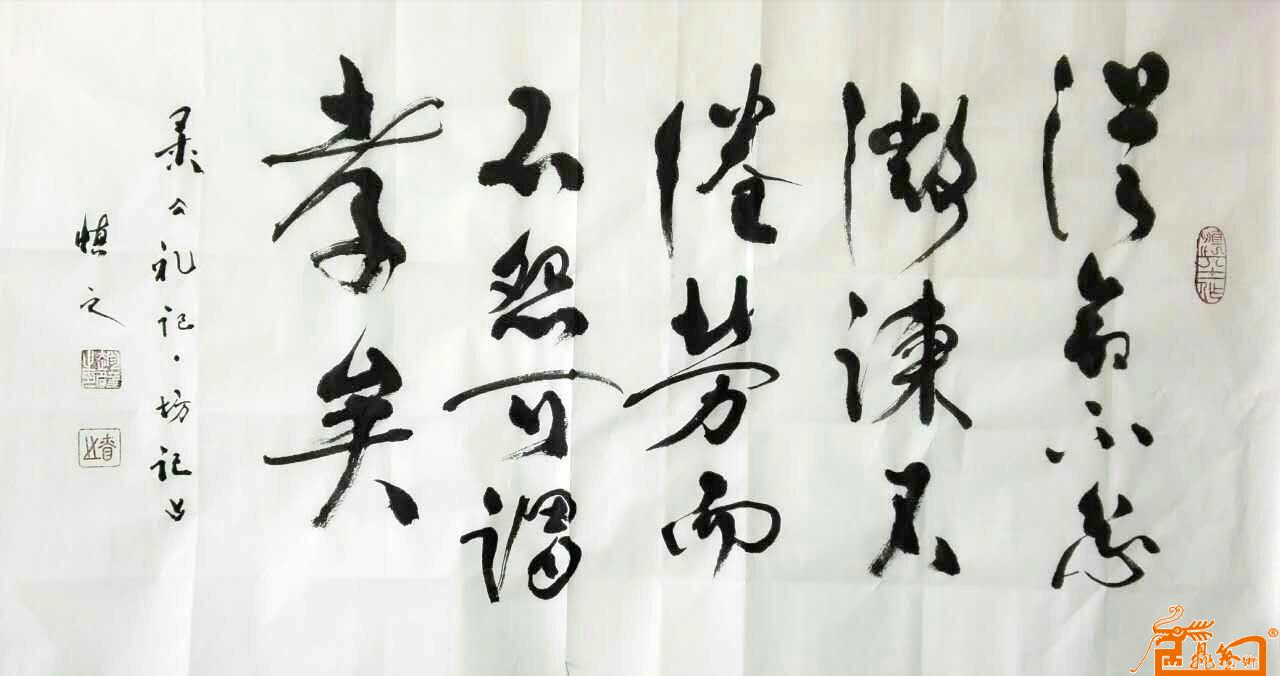 從命不忿
微諫不
倦勞而
不怨可謂
孝矣
录入礼记·坊记句
慎之